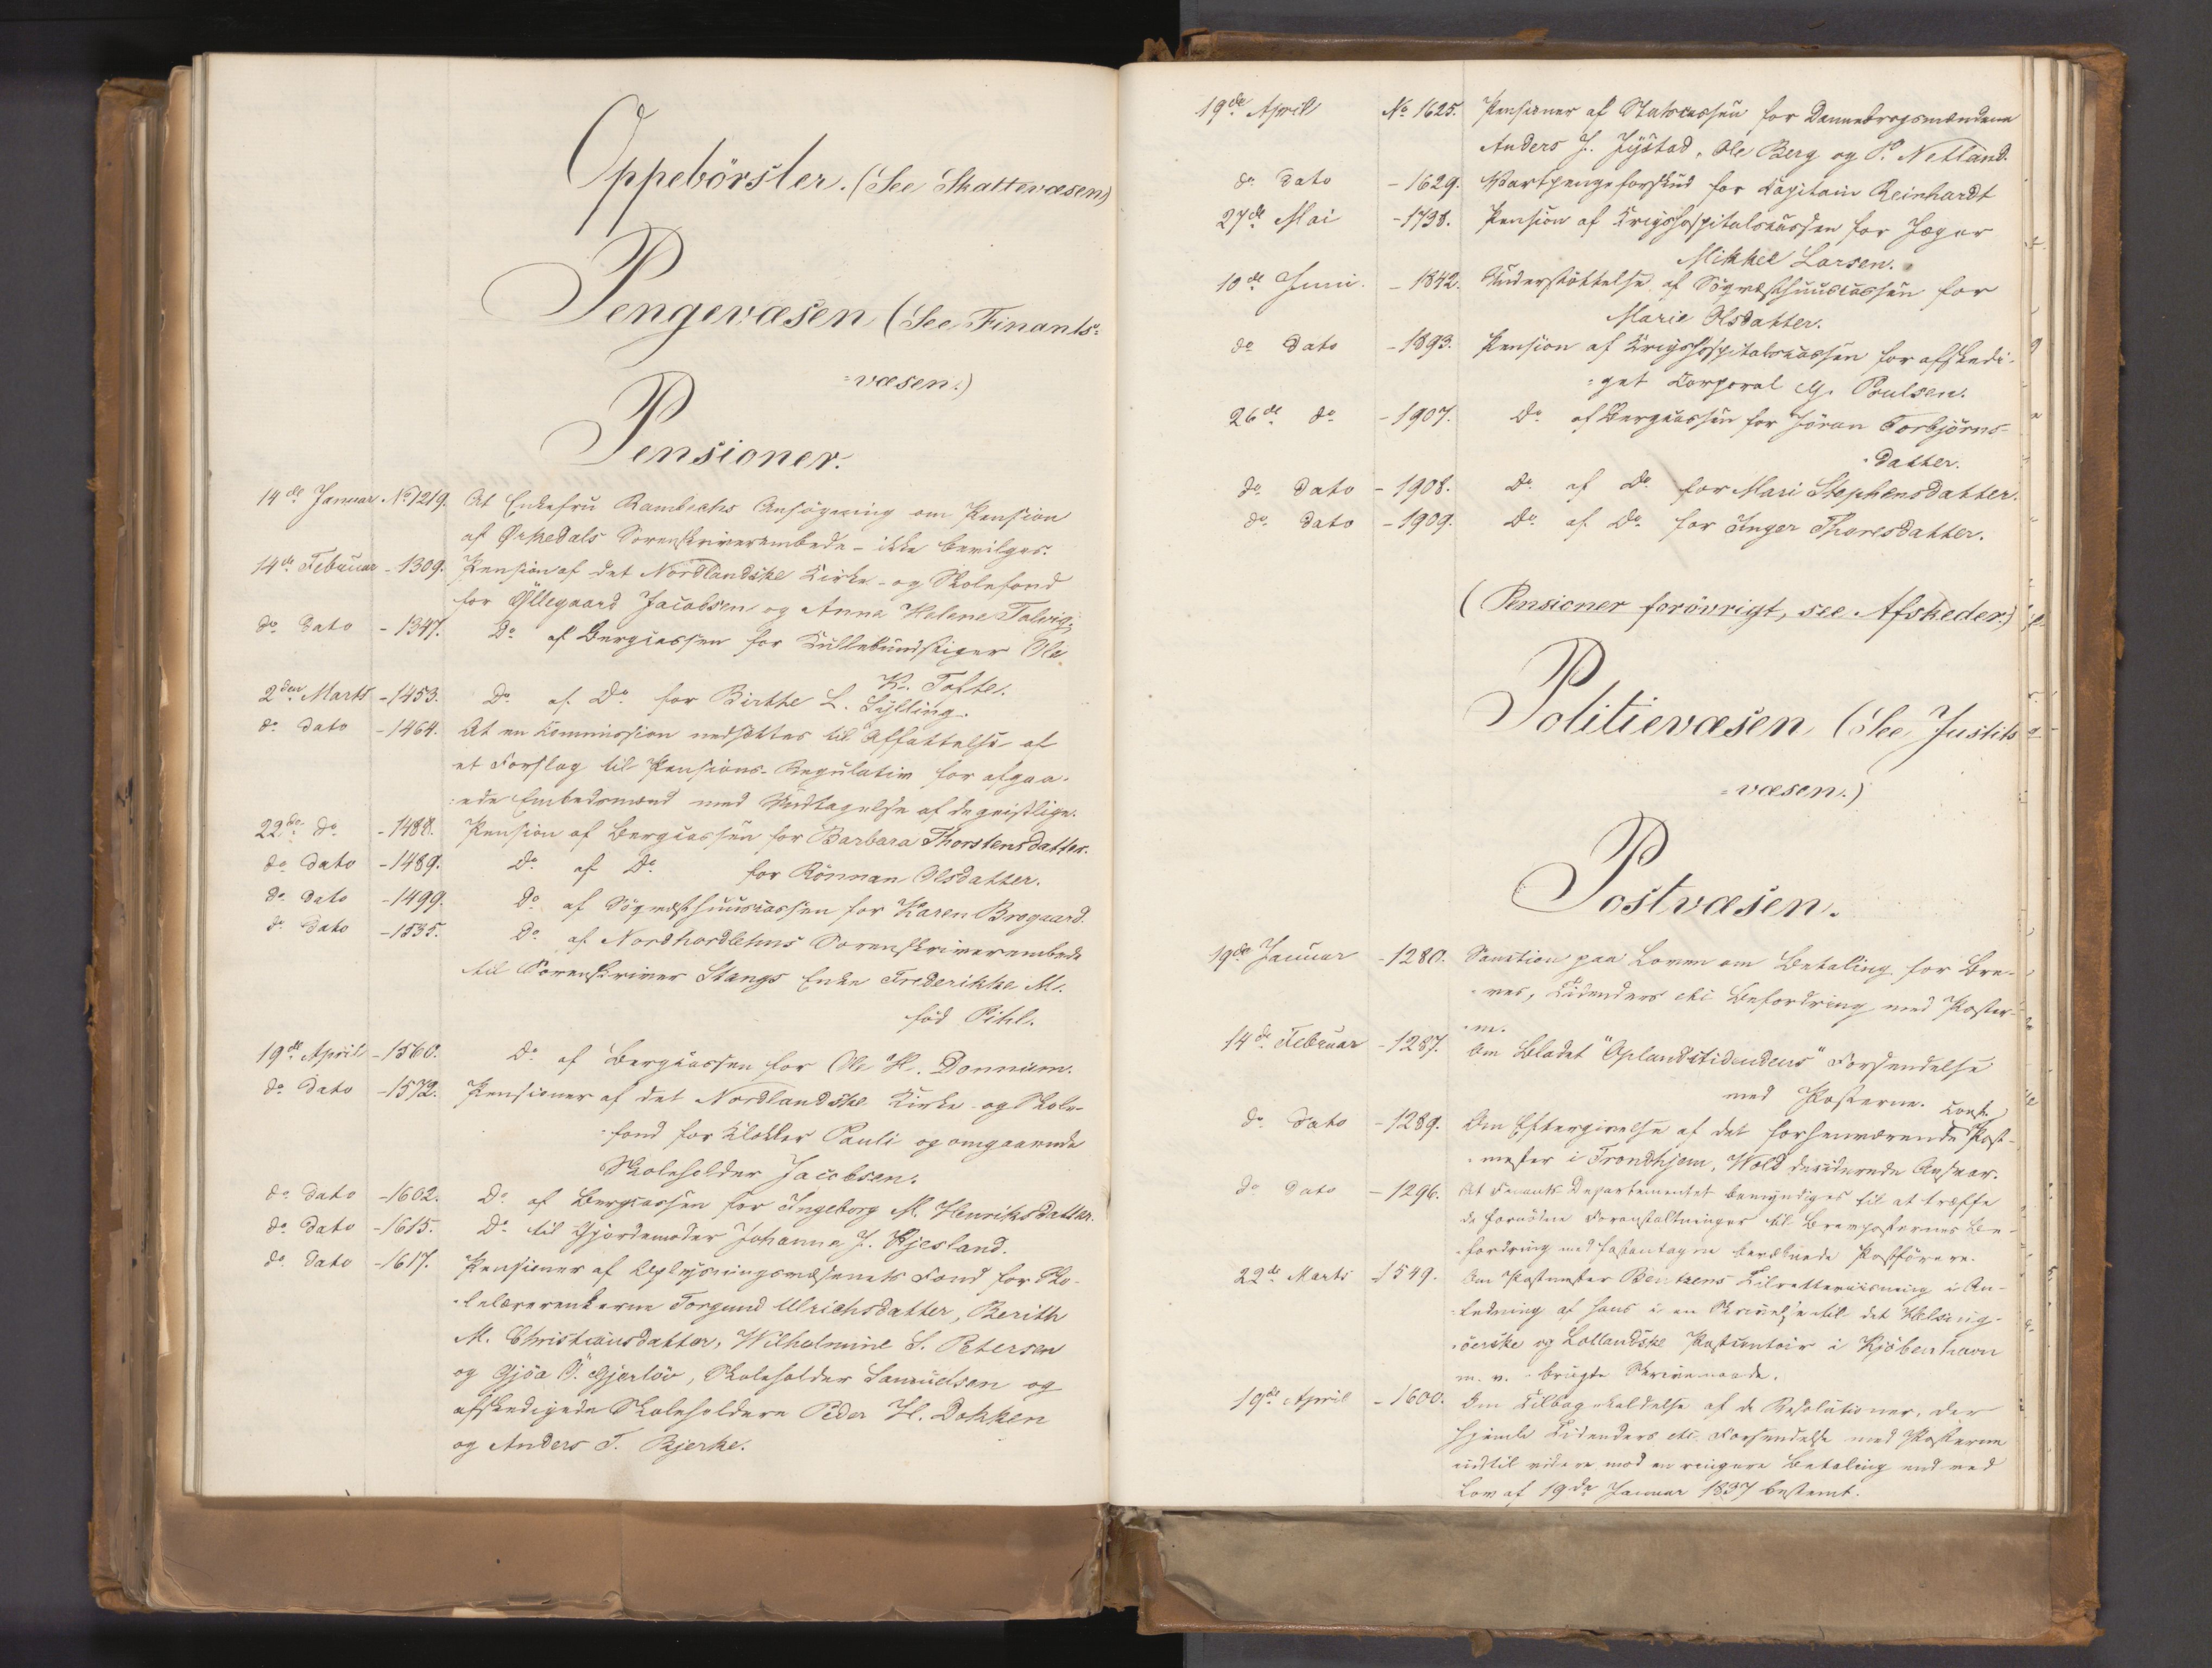 Oppebörsler. (See Skattevæsen)
Pengevæsen (See Finants=
=væsen.)
Pensioner.
14de Januar. No 1219. At Enkefru Rambechs Ansögning om Pension
af Örkedals Sorenskriverembede - ikke bevilges.
14de Februar - 1309. Pension af det Nordlandske Kirke- og Skolefond
for Øllegaard Jacobsen og Anna Helena Talvig.
do Dato - 1347. Do af Bergcassen for Ole
K. Tofte.
2den Marts - 1453. Do af Do for Birthe L. Sylling.
do Dato - 1464. At en Kommission nedsættes til Affattelse af
et Forslag til Pensions-Regulativ for afgaa-
=ede Embedsmænd med Undtagelse af de geistlige.
22de do - 1488. Pension af Bergcassen for Barbara Thorstensdatter.
do Dato - 1489. Do af Do for Rönnau Olsdatter.
do Dato - 1499. Do af Söqvæsthuuscassen for Karen Brogaard.
do Dato - 1535. Do af Nordhordlehns Sorenskriverembede
til Sorenskriver Stangs Enke Frederikke M.
föd Pihl.
19de April - 1560. Do af Bergcassen for Ole H. Donnum.
do Dato - 1572. Pensioner af det Nordlandske Kirke- og Skole-
=fond for Klokker Pauli og omgaaende
Skoleholder Jacobsen.
do Dato - 1602. Do af Bergcassen for Ingeborg M. Henriksdatter.
do Dato - 1615. Do til Gjordemoder Johanna J. Kjesland.
do Dato - 1617. Pensioner af Oplysningsvæsenets Fond for Sko-
=lelærerenkerne Torgund Ulrichsdatter, Berith
M. Christiansdatter, Wilhelmine S. Petersen
og Gjöa O. Gjerlöv, Skoleholder Samuelsen og
afskedigede Skoleholdere Peder H. Dokken
og Anders T. Bjerke.
19de April No 1625. Pensioner af Statscassen for Dannebrogsmændene
Anders J. Jystad, Ole Berg og P. Netland.
do Dato - 1629. Vartpengeforskud for Capitain Reinhardt
27de Mai - 1738. Pension af Krigshospitalscassen for Jæger
Mikkel Larsen.
10de Juni. - 1842. Understöttelse af Söqvæsthuuscassen for
Marie Olsdatter.
do Dato - 1893. Pension af Krigshospitalscassen for afskedi-
=get Corporal G. Poulsen.
26de do - 1907. Do af Bergcassen for Jöran Torbjörns-
=datter.
do Dato - 1908. Do af Do for Mari Stephensdatter.
do Dato - 1909. Do af Do for Inger Thoresdatter.
(Pensioner forövrigt, see Afskeder.)
Politievæsen (See Justits
=væsen.)
Postvæsen.
19de Januar - 1280. Sanction paa Loven om Betaling for Bre-
=ves, Tidenders etc Befordring med Poster-
=ne.
14de Februar - 1287. Om Bladet "Oplandstidendens" Forsendelse
med Posterne.
do Dato - 1289. Om Eftergivelse af det forhenværende const. Post-
=mester i Trondhjem, Wold desiderede Ansvar.
do Dato - 1296. At Finants Departementet bemyndiges til at træffe
de fornödne Foranstaltninger til Brevposternes Be-
=fordring med fastantagne bevæbnede Postförere.
22de Marts - 1549. Om Postmester Bentzens Tilretteviisning i An-
=ledning af hans i en Skrivelse til det Helsing-
=öerske og Lollandske Postcontoir i Kjöbenhavn
m. v. brugte Skrivemaade.
19de April - 1600. Om Tilbagekaldelse af de Resolutioner, der
hjemle Tidenders etc. Forsendelse med Posterne
indtil videre mod en ringere Betaling end ved
Lov af 19de Januar 1837 bestemt.